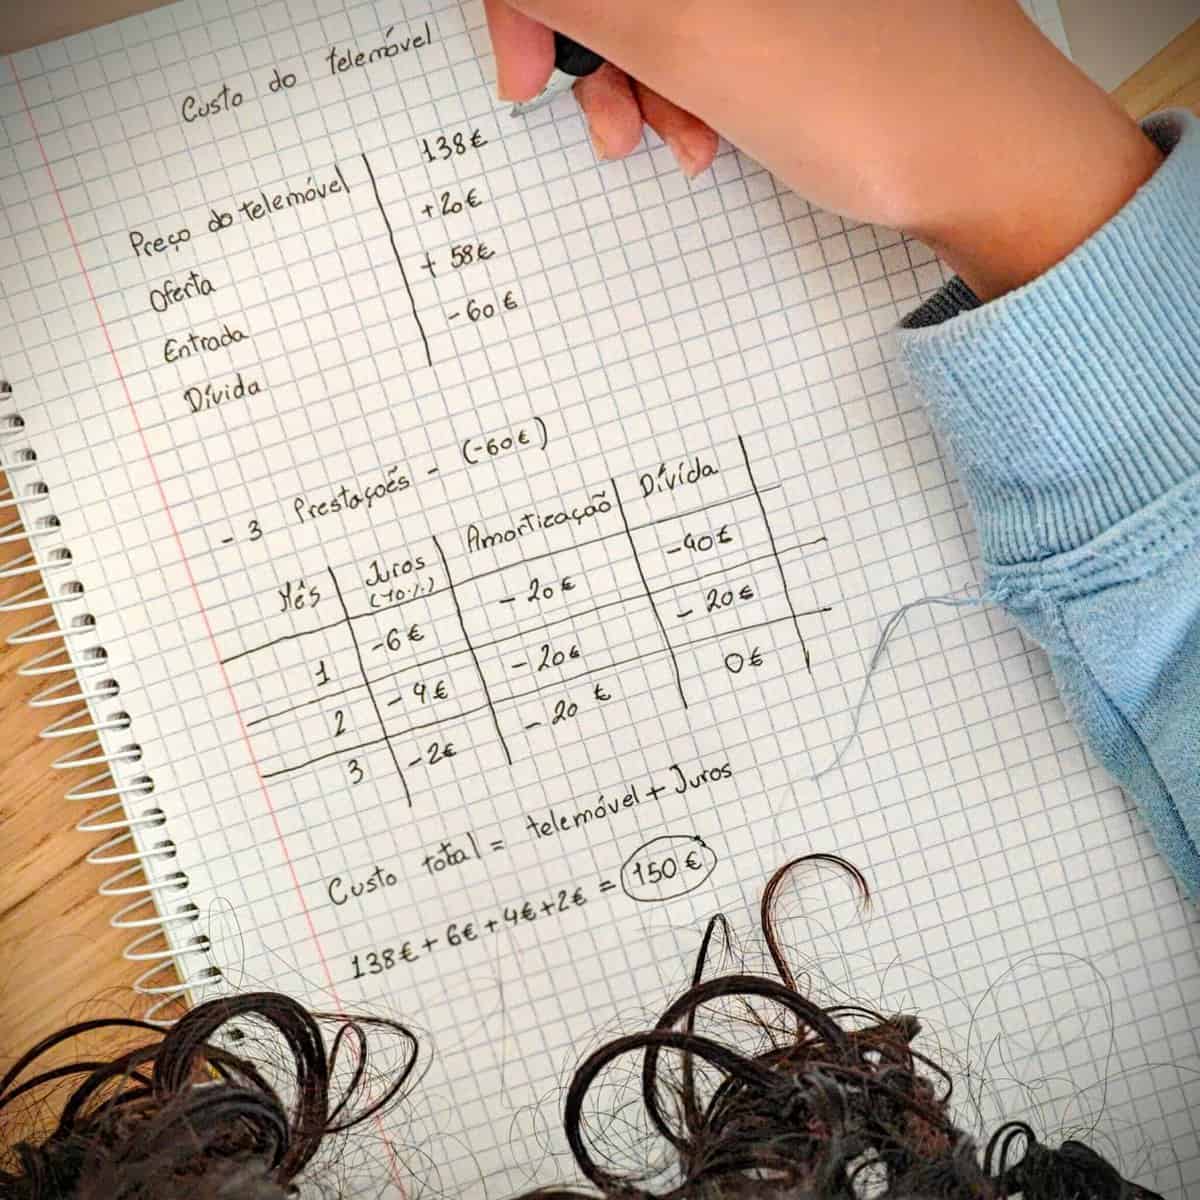 Custo do telemóvel
Preço do telemóvel 138€
Oferta +20€
Entrada + 58€
Dívida -60€
- 3 Prestações - (-60€)
Mês Juros (10%) Amorticação Dívida
1 -6€ -20€ -40€
2 -4€ -20€ -20€
3 -2€ -20€ 0€
Custo total = telemóvel + Juros
138€ + 6€ + 4€ + 2€ = 150€